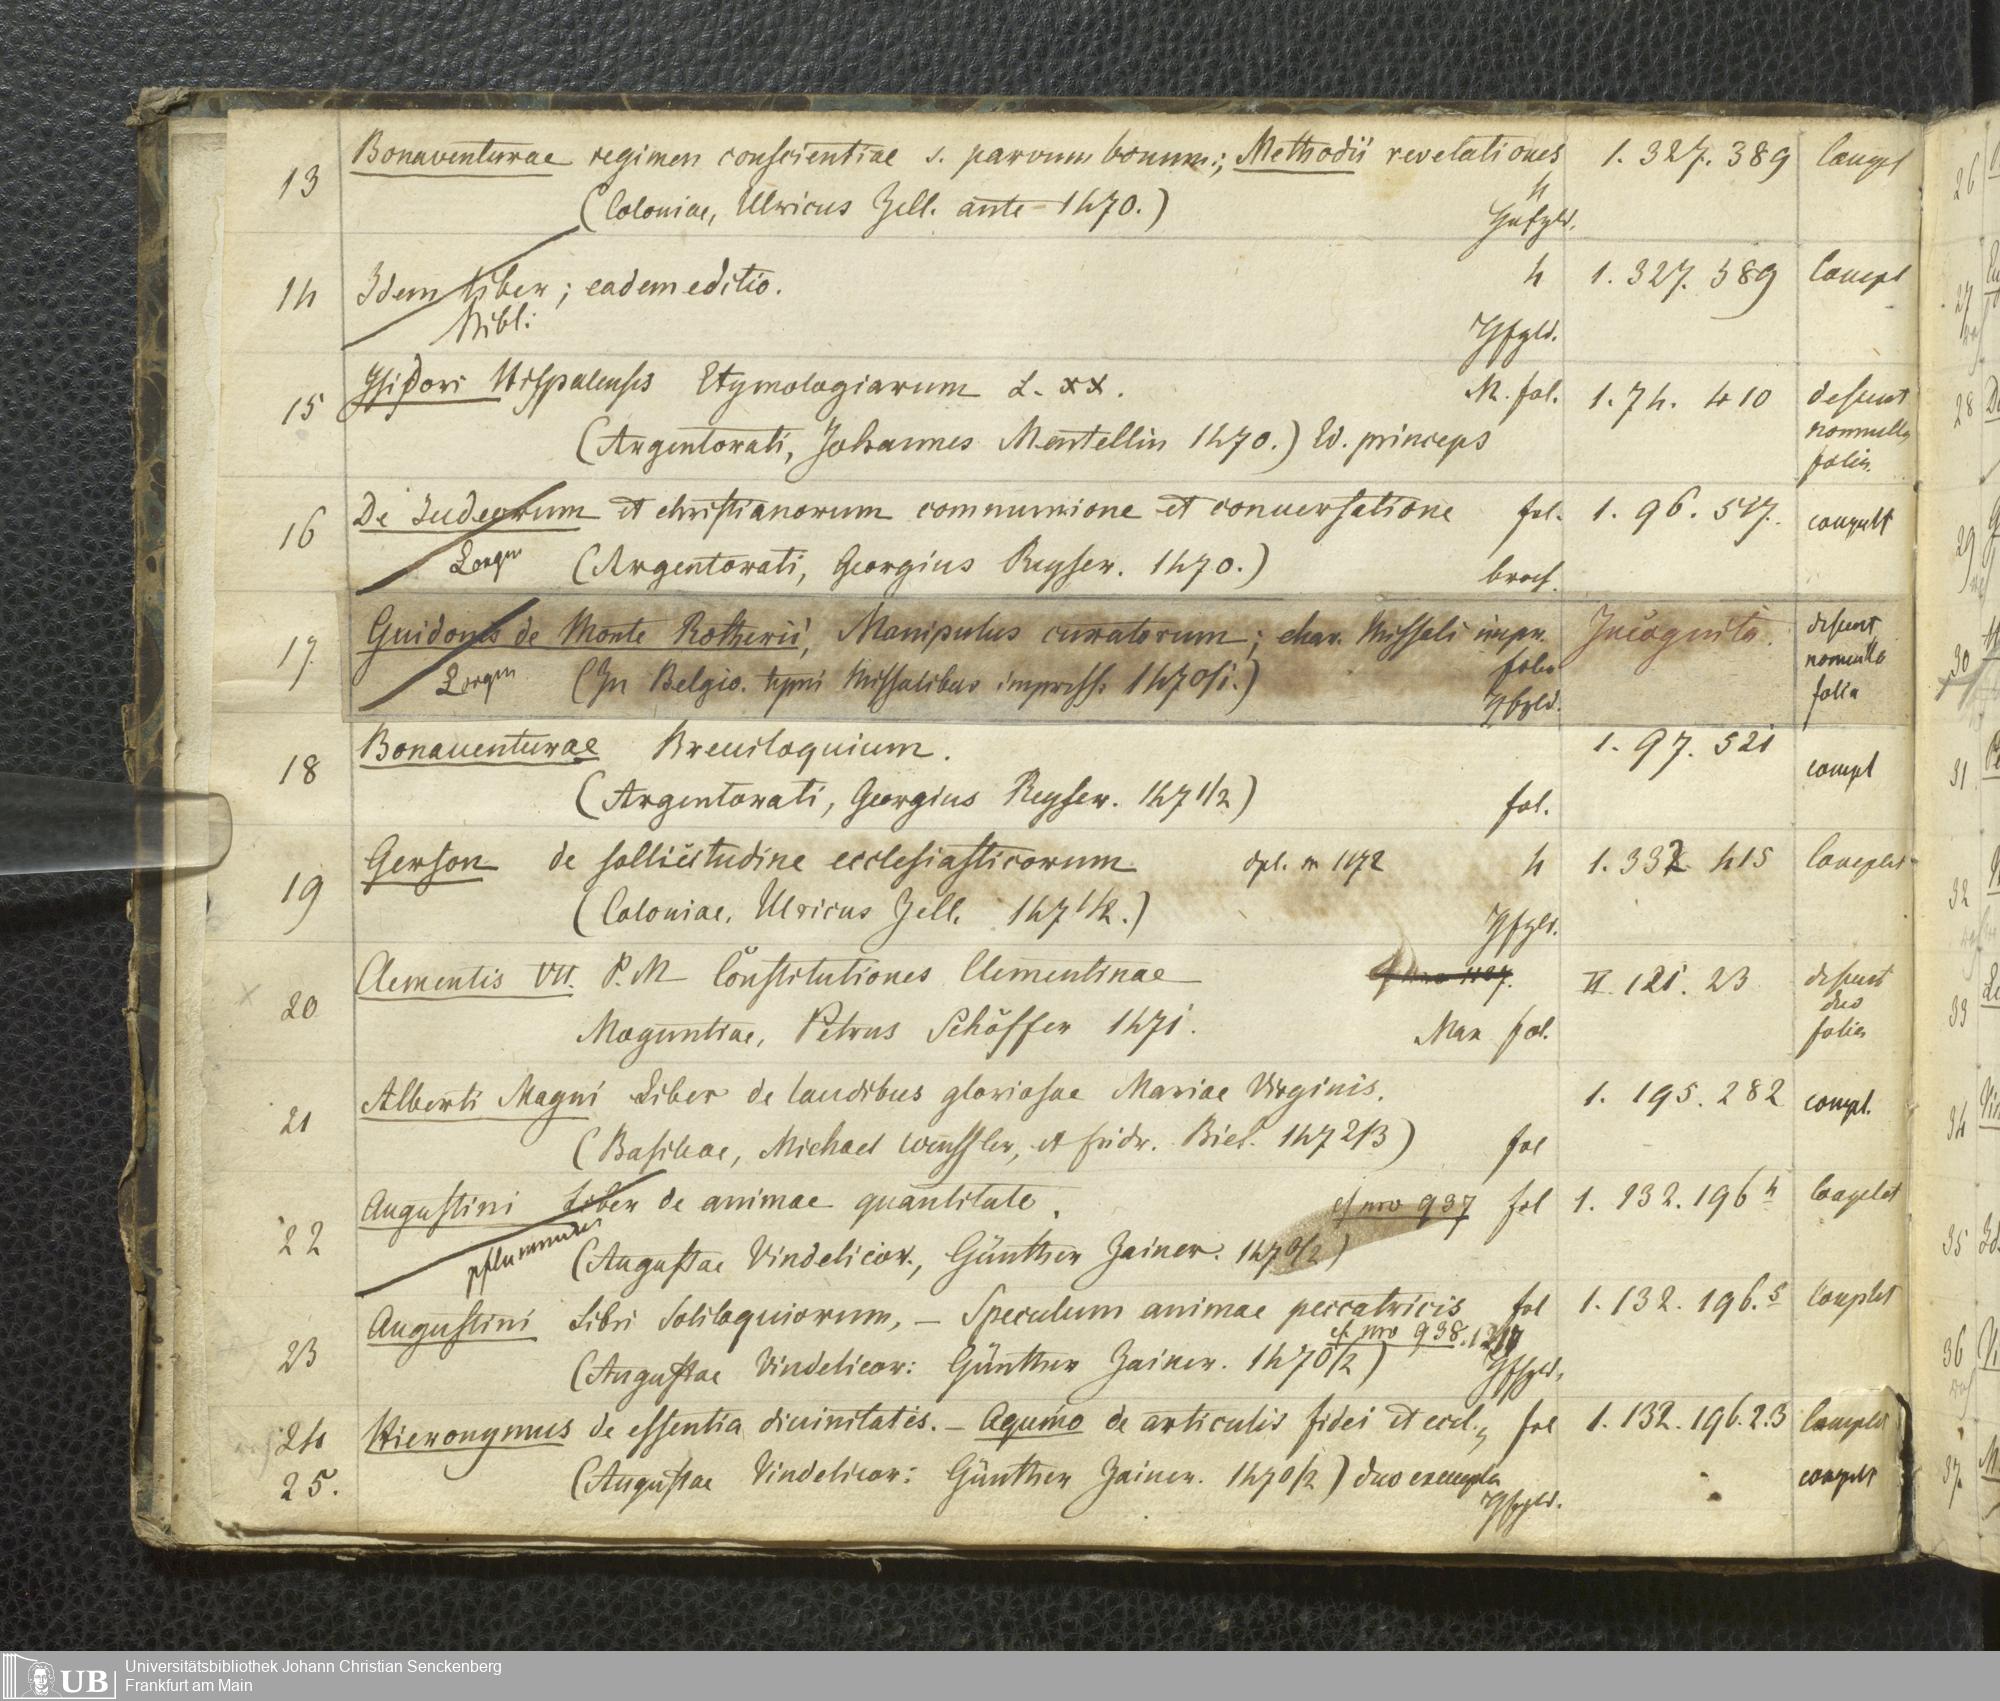 13 Bonaventurae regimen conscientiae s. parvum bonum; Methodii revelationes 1. 327. 389 Compl
(Coloniae, Ulricus Zell. ante 1470.) 4
14 Idem liber; eadem editio. 4 1. 327. 389 Compl
Bibl:
15 Isidori Hispalensis Etymologiarum L. XX. M. fol. 1. 74. 410 desunt
(Argentorati, Johannes Mentellin 1470.) Ed. princeps nonnulla
folia.
16 De Iudeorum et christianorum communione et conversatione fol. 1. 96. 517. complt
(Argentorati, Georgius Reyser. 1470.) broch.
17 Guidonis de Monte Rotherii, Manipulus curatorum; char. Missali impr. Incognita. desunt
folio nonnulla
(In Belgio. typis Missalibus impress. 1470/1.) folia
18 Bonaventurae Breviloquium. 1. 97. 521 compl
(Argentorati, Georgius Reyser. 1471/2) fol.
19 Gerson de sollicitudine ecclesiasticorum dpl. n 1172 4 1. 332 415 Complet
(Coloniae, Ulricus Zell. 1471/2.)
20 Clementis VII. P. M Constitutiones Clementinae II. 121. 23 desunt
duo
Moguntiae, Petrus Schöffer 1471. Max fol. folia
21 Alberti Magni Liber de laudibus gloriosae Mariae Virginis. 1. 195. 282 compl.
(Basileae, Michael Wenssler, et fridr. Biel. 1472/3) fol
22 Augustini Liber de animae quantitate. cf nro 937 fol 1. 132. 196 4 Complet
(Augustae Vindelicor., Günther Zainer. 1470/2)
23 Augustini Libri Soliloquiorum, – Speculum animae peccatricis fol 1. 132. 196. 5 Complet
cf. nro 938.
(Augustae Vindelicor: Günther Zainer. 1470/2)
24 Hieronymus de essentia divinitatis. – Aquino de articulis fidei et eccl., fol 1. 132. 196. 2. 3 Complet
25. (Augustae Vindelicor: Günther Zainer. 1470/2) duo exempla complt
26
27
28
29
30
31
32
33
34
35
36
37
UB
Universitätsbibliothek Johann Christian Senckenberg
Frankfurt am Main